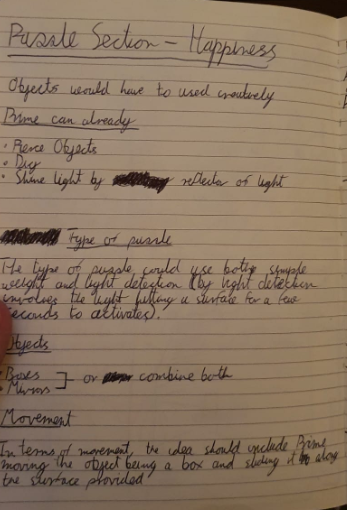 Puzzle Section - Happiness
Objects would have to used creatively
Prime can already
• Pierce Objects
• Dig
• Shine light by reflector of light
Type of puzzle
The type of puzzle could use both simple
weight and light detection (by light detection
involves the light hitting a surface for a few
seconds to activates).
Objects
• Boxes
• Mirrors ] or combine both
Movement
In terms of movement, the idea should include Prime
moving the object being a box and sliding it along
the surface provided